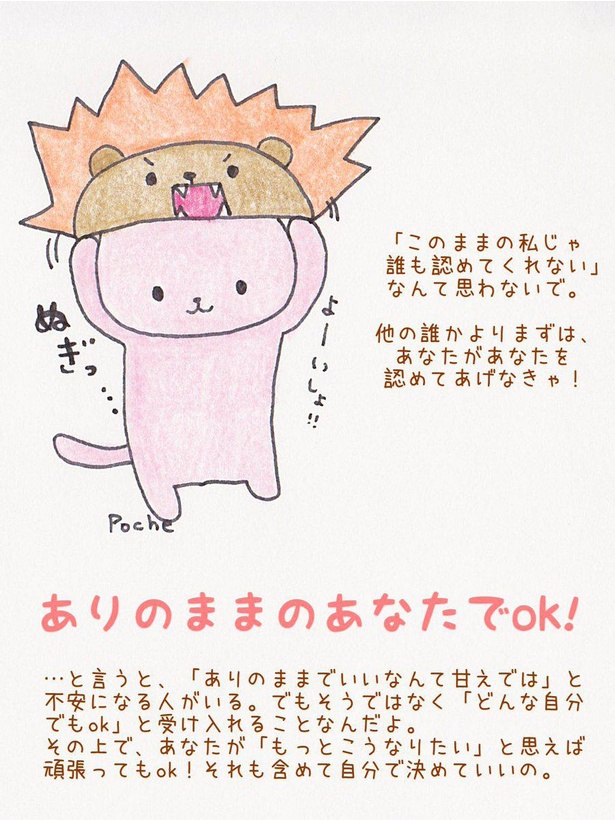 「このままの私じゃ
誰も認めてくれない」
なんて思わないで。
他の誰かよりまずは、
あなたがあなたを
認めてあげなきゃ！
ぬぎっ…
よーいしょ!!
Poche
ありのままのあなたでok!
…と言うと、「ありのままでいいなんて甘えでは」と
不安になる人がいる。でもそうではなく「どんな自分
でもok」と受け入れることなんだよ。
その上で、あなたが「もっとこうなりたい」と思えば
頑張ってもok！それも含めて自分で決めていいの。